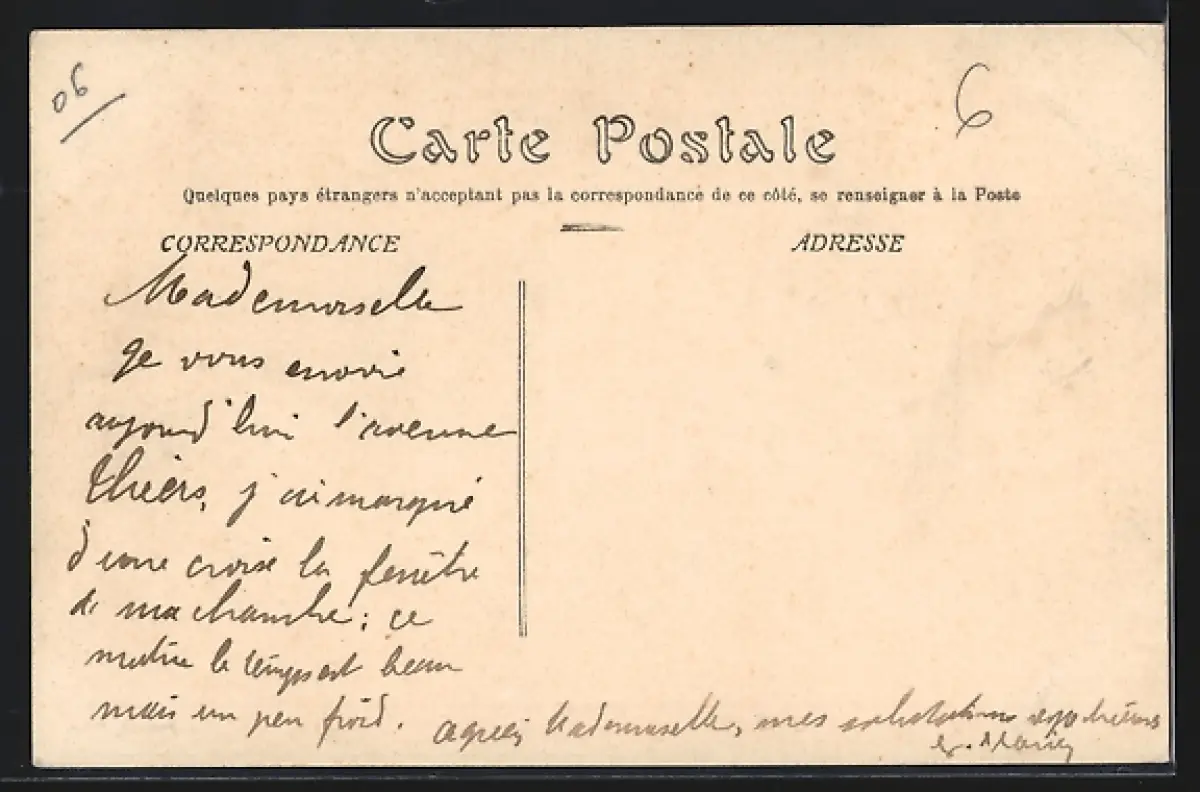 06
6
Carte Postale
Quelques pays étrangers n'acceptant pas la correspondance de ce côté, se renseigner à la Poste
CORRESPONDANCE
ADRESSE
Mademoiselle
Je vous envoie
aujourd'hui l'avenue
Thiers, j'ai marqué
d'une croix la fenêtre
de ma chambre; ce
matin le temps est beau
mais un peu froid.
agréez Mademoiselle, mes salutations